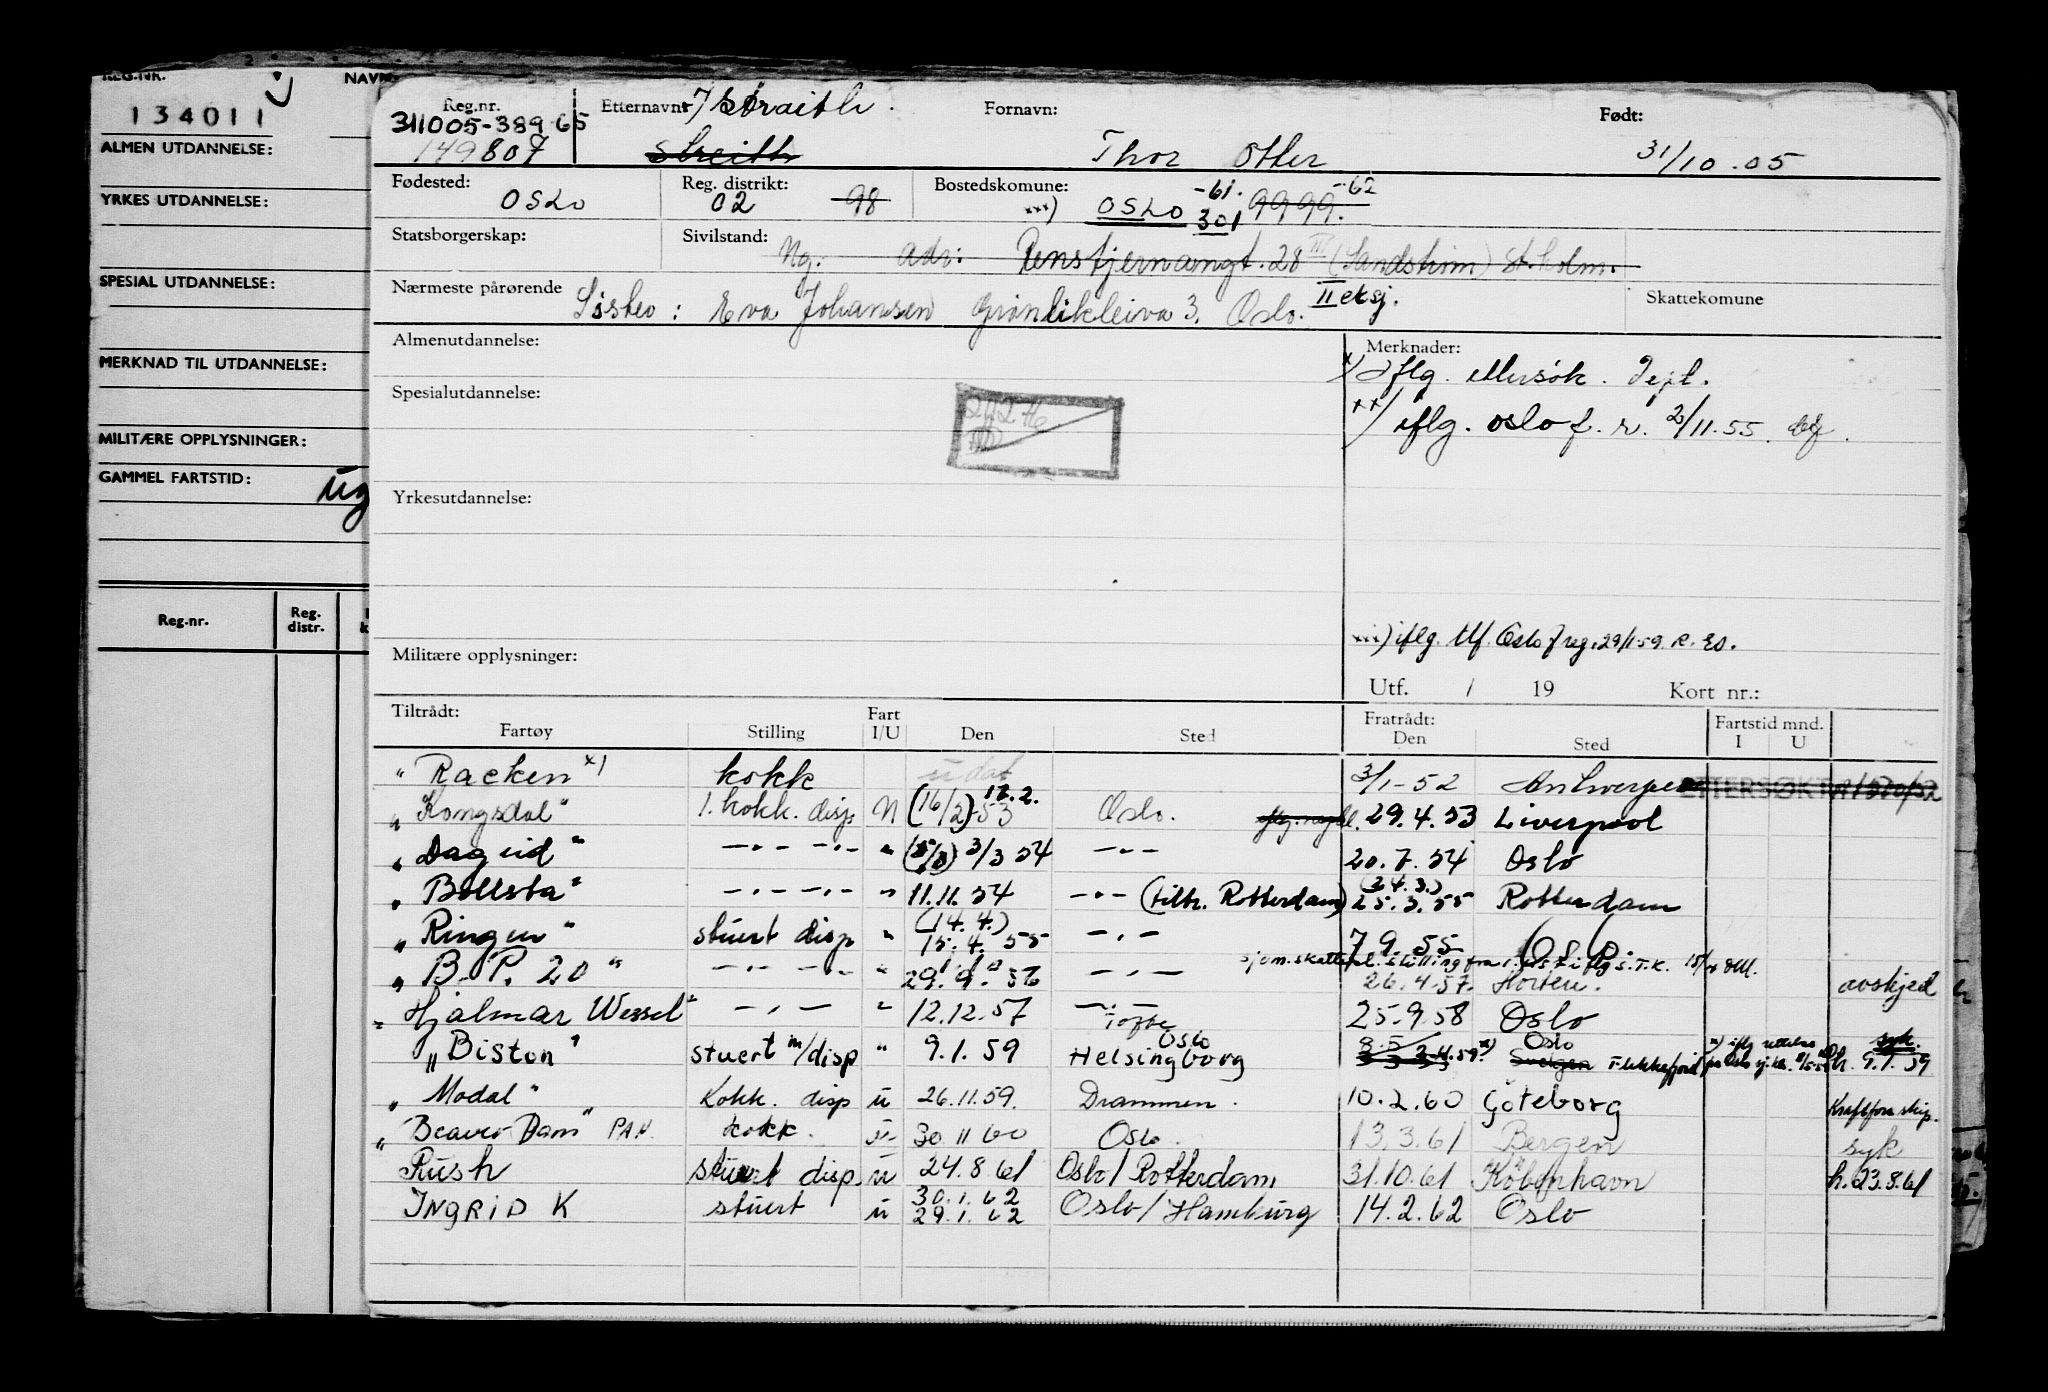 REG.NR. NAVN
134011
ALMEN UTDANNELSE:
YRKES UTDANNELSE:
SPESIAL UTDANNELSE:
MERKNAD TIL UTDANNELSE:
MILITÆRE OPPLYSNINGER:
GAMMEL FARTSTID: ug
Reg.nr. Reg. distr.
Reg.nr. Etternavn: Straith. Fornavn: Født:
311005-38965
149807 Streith Thor Otter 31/10.05
Fødested: OSLO Reg. distrikt: 02 98 Bostedskomune: xxx) OSLO -61. 301 9999. -62
Statsborgerskap: Sivilstand: Ng. adr: Renstjernangt. 28 III (Sandstrøm) St.holm.
Nærmeste pårørende Søster: Eva Johansen Grønlikleiva 3. Oslo. II eksj. Skattekomune
Almenutdannelse: Merknader:
x) Iflg. ettersøk. Tept.
Spesialutdannelse:
xx) iflg. Oslo f. r. 2/11.55.
Yrkesutdannelse:
xxx) iflg. tlf. Oslo f reg. 29/1-59. R. Eo.
Militære opplysninger:
Utf. / 19 Kort nr.:
Tiltrådt: Fart Fratrådt: Fartstid mnd.
Fartøy Stilling I/U Den Sted Den Sted I U
"Racken" x) kokk udat 3/1-52 Antwerpen ETTERSØKT
"Kongsdal" 1. kokk. disp N (16/2)-53 17.2. Oslo. 29.4.53 Liverpool
"Dagrid" -.- -.- " 3/3 54 -.- 20.7.54 Oslo
"Bollsta" -.- -.- " 11.11.54 -.- (tiltr. Rotterdam) (24.3.) 25.3.55 Rotterdam
"Ringen" stuert disp " (14.4.) 15.4.55 -.- 7.9.55 Oslo
"B.P. 20" -.- -.- " 29.9.56 -.- 26.4.57. Horten. avskjed
"Hjalmar Wessel" -.- " 12.12.57 -.- Tofte 25.9.58 Oslo
"Biston" stuert m/disp " 9.1.59 Oslo Helsingborg 8.5 2.4.59 x) Oslo Svelgen Flekkefjord syk. h. 9.1.59
"Modal" Kokk. disp u 26.11.59. Drammen. 10.2.60 Göteborg Kraftforskip.
"Beaver Dam" PAN. kokk. u 30 11 60 Oslo. 13.3.61 Bergen syk
Rush stuert disp. u 24.8.61 Oslo/Rotterdam 31.10.61 København h. 23.8.61
INGRID K stuert u 30.1.62 29.1.62 Oslo/Hamburg 14.2.62 Oslo